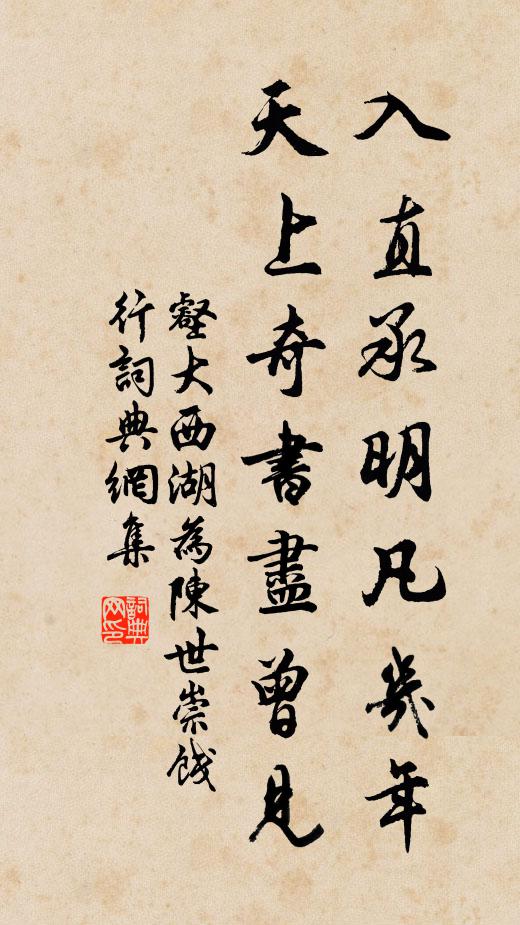 入直承明凡幾年
天上奇書盡曾見
壑大西湖為陳世崇餞
行詞典網集
詞典網印